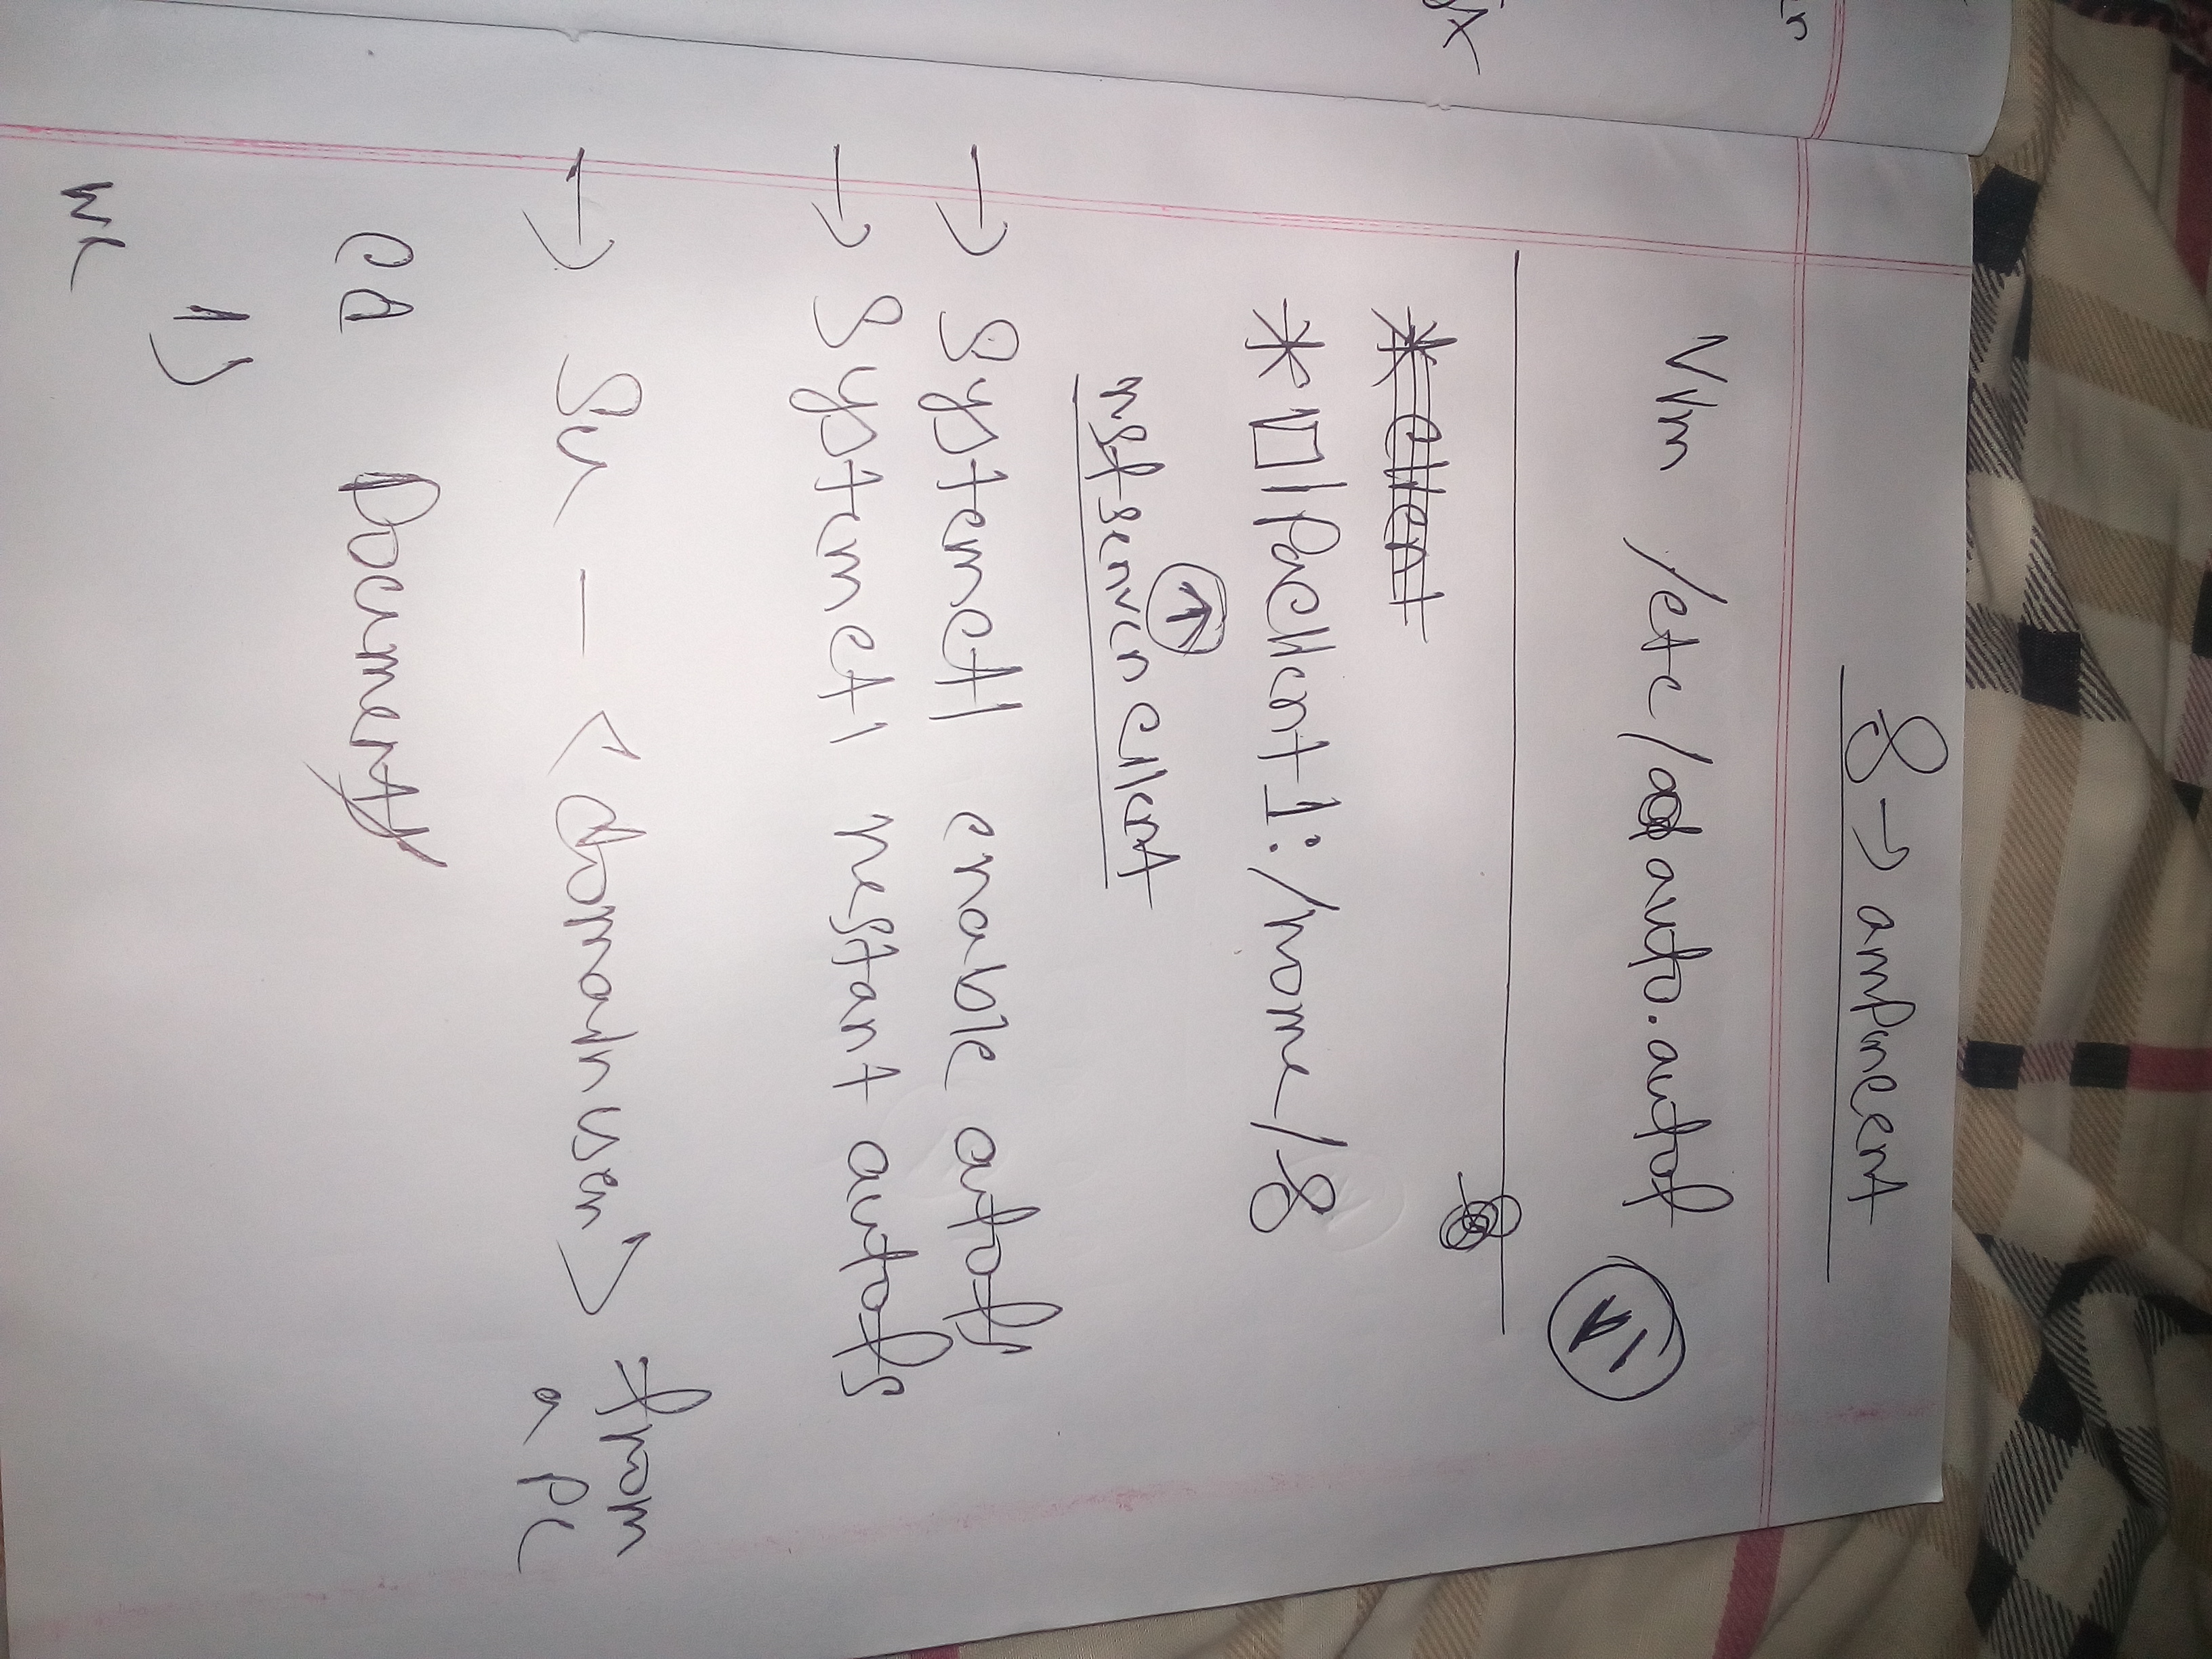 & → ampercent
Vim /etc/auto.autof
* ipaclient1:/home/&
↑
nsf server client
→ Systemctl enable autofs
→ Systemctl restart autofs
→ Su - <domainuser> from
a pc
cd Documents
ls
wc